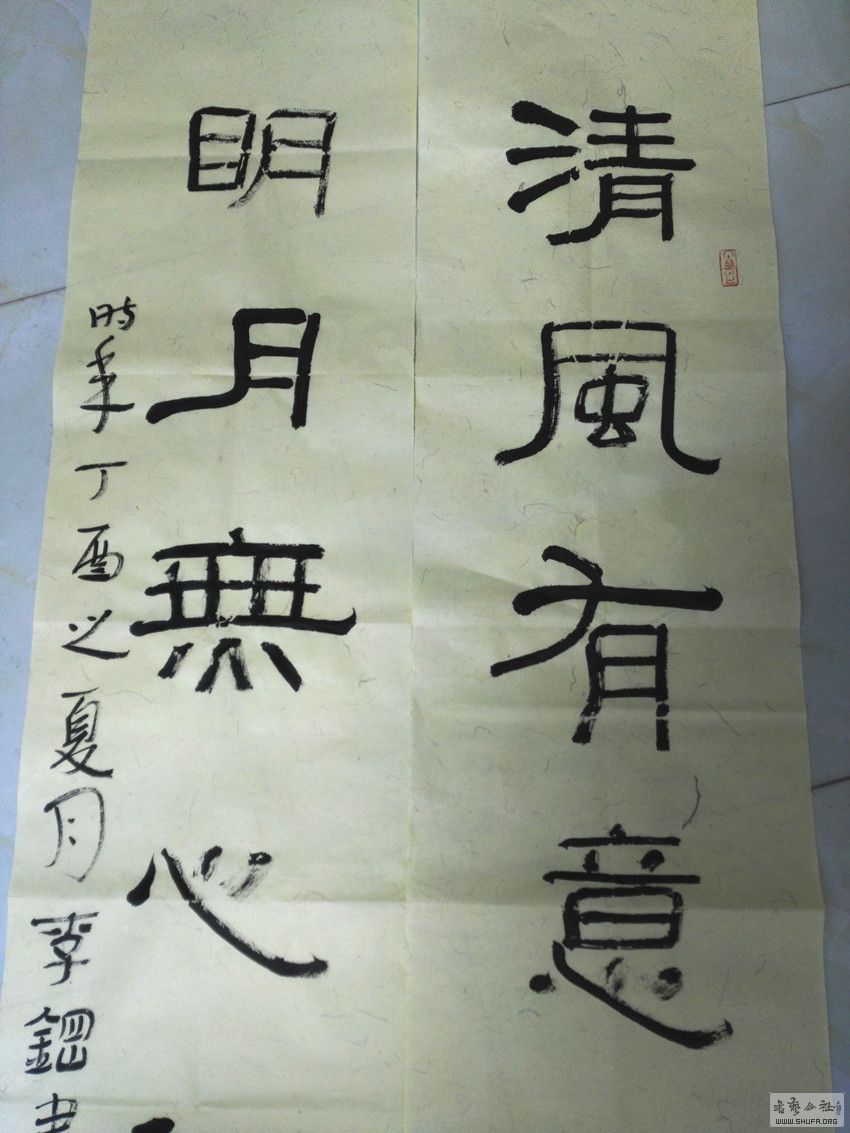 清風有意
明月無心
時年丁酉之夏月李鋼书
書藝公社
WWW.SHUFA.ORG